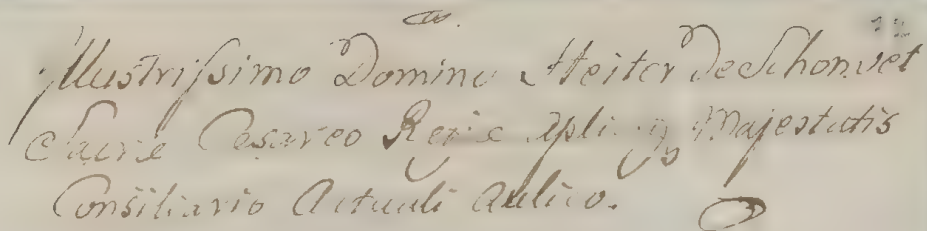 Illustrissimo Domino Heiter De Schonvet
Sacrae Cesareo Regie Majestatis
Consiliario Actuali Aulico.